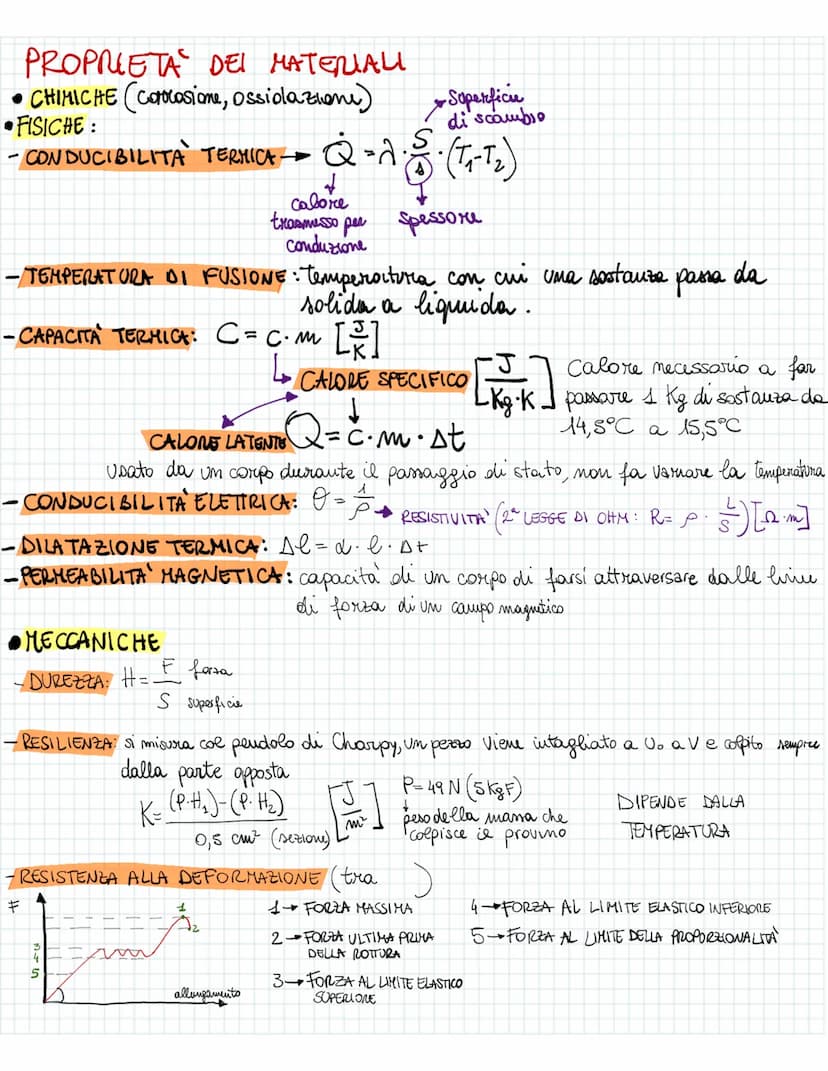 PROPRIETA' DEI MATERIALI
• CHIMICHE (corrosione, ossiolazione)
• FISICHE:
Superficie di scambio
- CONDUCIBILITÀ TERMICA → Q̇ = λ · S/s · (T₁-T₂)
calore trasmesso per conduzione
spessore
- TEMPERATURA DI FUSIONE: temperatura con cui una sostanza passa da
solida a liquida.
- CAPACITÀ TERMICA: C = c · m [J/K]
CALORE SPECIFICO [J/Kg·K] Calore necessario a far
passare 1 Kg di sostanza da
14,5°C a 15,5°C
CALORE LATENTE Q = c · m · Δt
Usato da un corpo durante il passaggio di stato, non fa variare la temperatura
- CONDUCIBILITÀ ELETTRICA: θ = 1/ρ → RESISTIVITA' (2ª LEGGE DI OHM: R = ρ · L/S) [Ω·m]
- DILATAZIONE TERMICA: Δl = α · l · Δt
- PERMEABILITA' MAGNETICA: capacità di un corpo di farsi attraversare dalle linee
di forza di un campo magnetico
• MECCANICHE
- DUREZZA: H = F/S forza superficie
- RESILIENZA: si misura col pendolo di Charpy, un pezzo viene intagliato a U o a V e colpito sempre
dalla parte opposta
K = (P·H₁)-(P·H₂) / 0,5 cm² (sezione) [J/m²]
P = 49 N (5 KgF)
peso della massa che
colpisce il provino
DIPENDE DALLA
TEMPERATURA
- RESISTENZA ALLA DEFORMAZIONE (tra )
F
1
2
3
4
5
allungamento
1 → FORZA MASSIMA
2 → FORZA ULTIMA PRIMA
DELLA ROTTURA
3 → FORZA AL LIMITE ELASTICO
SUPERIORE
4 → FORZA AL LIMITE ELASTICO INFERIORE
5 → FORZA AL LIMITE DELLA PROPORZIONALITÀ